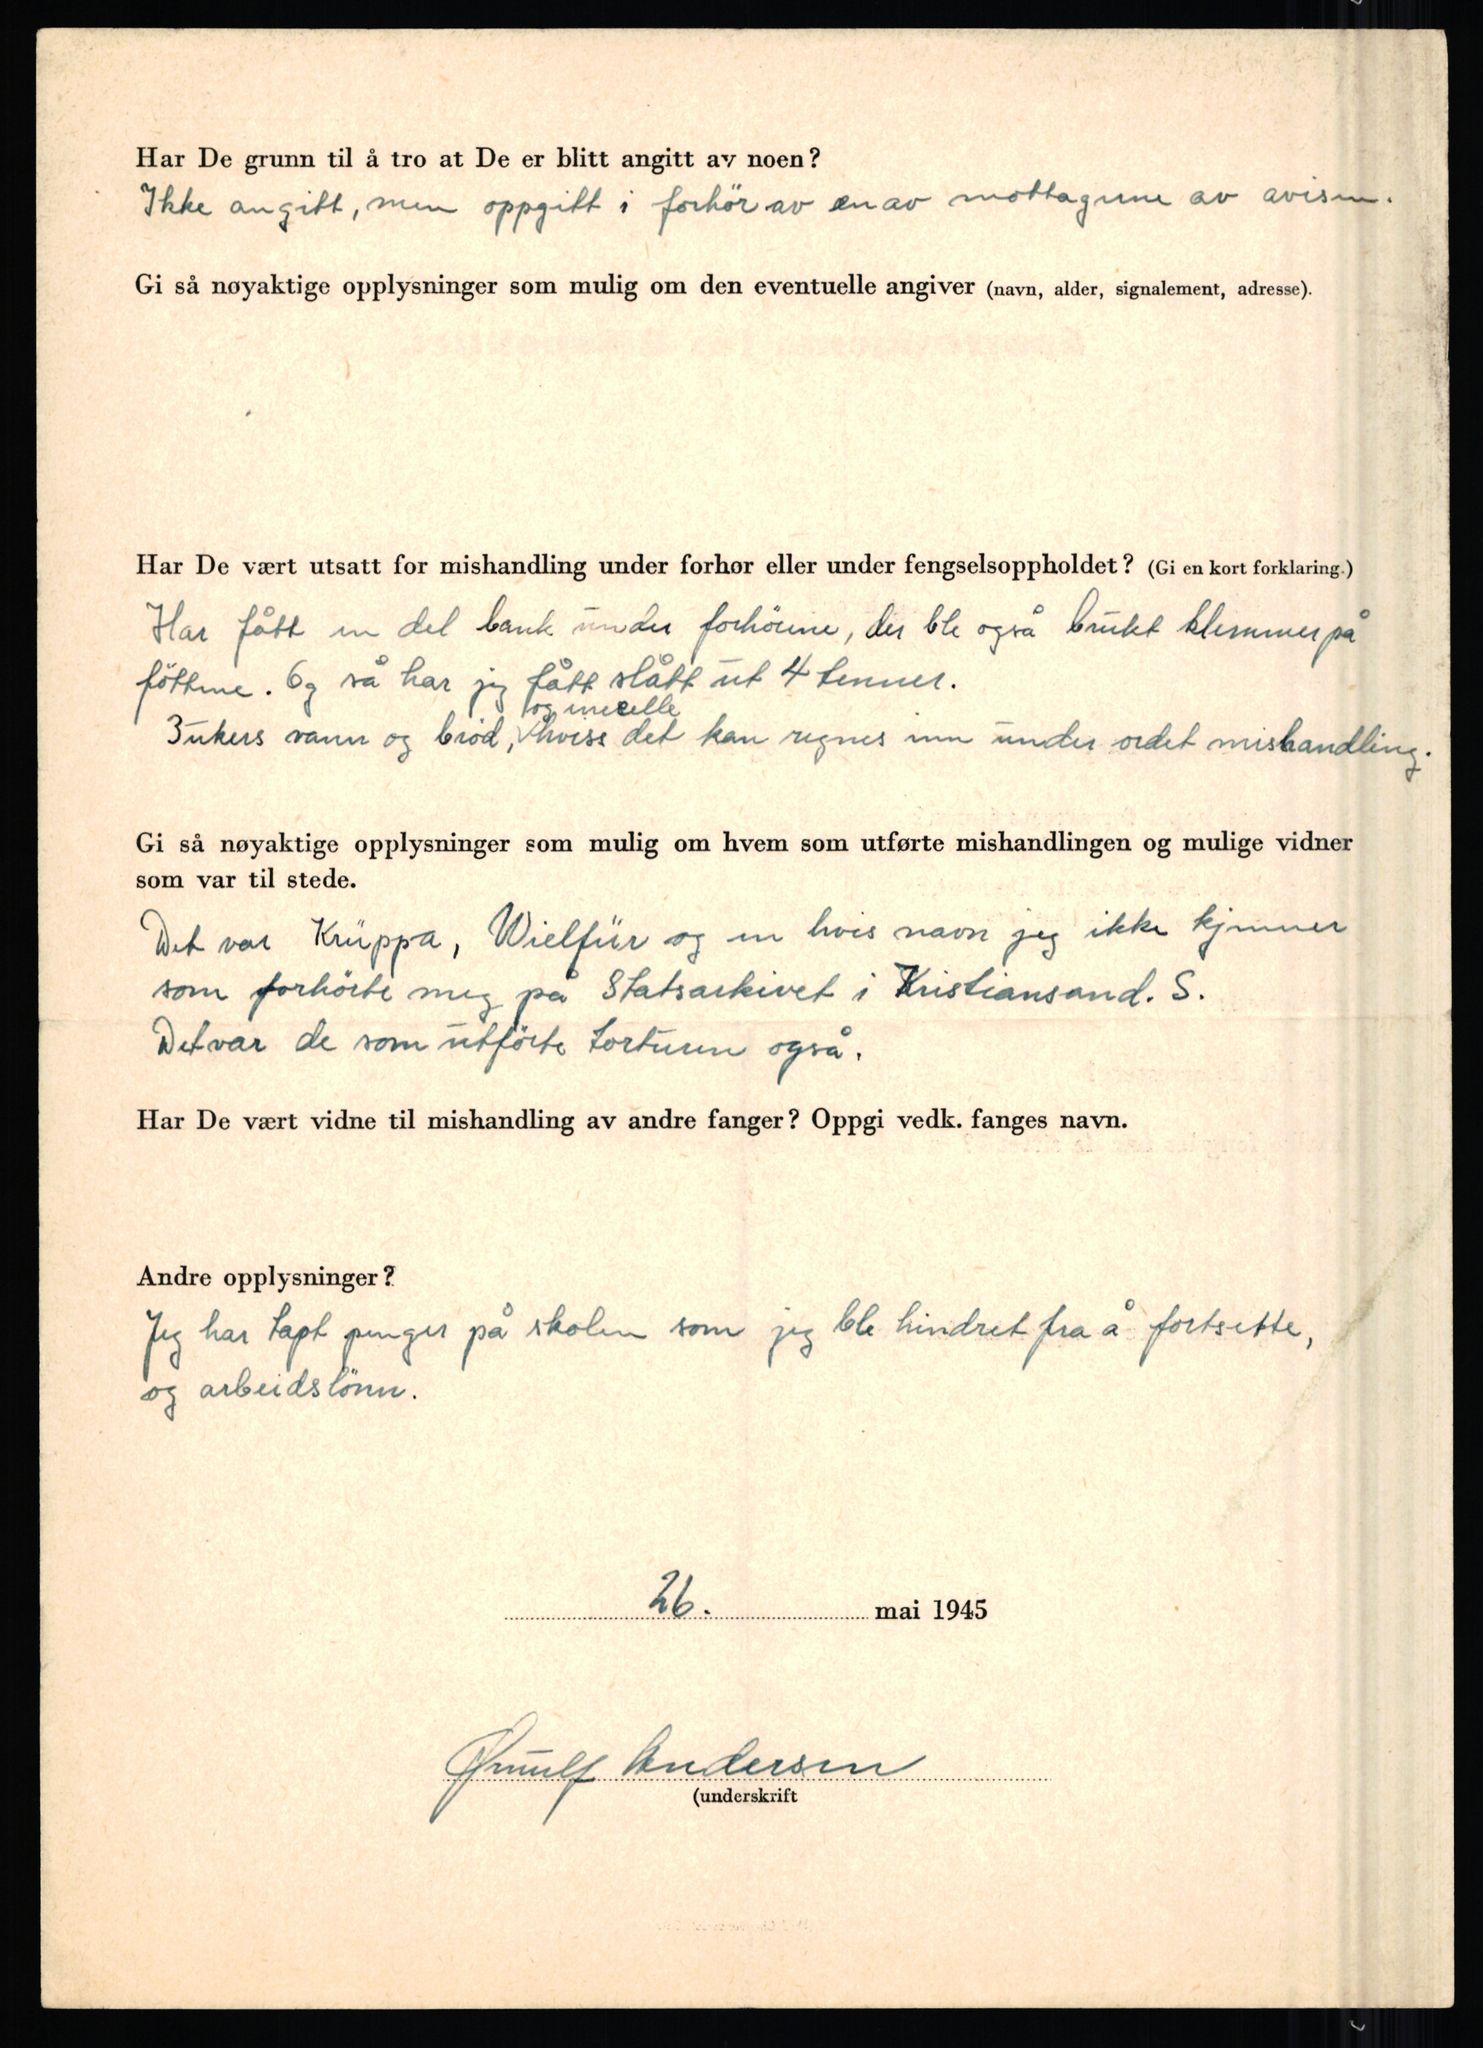 Har De grunn til å tro at De er blitt angitt av noen?
Ikke angitt, men oppgitt i forhör av en av mottagerne av avisen.
Gi så nøyaktige opplysninger som mulig om den eventuelle angiver (navn, alder, signalement, adresse).
Har De vært utsatt for mishandling under forhør eller under fengselsoppholdet? (Gi en kort forklaring.)
Har fått en del bank under forhörene, der ble også brukt klemmer på
föttene. Og så har jeg fått slått ut 4 tenner.
og mecelle
3 ukers vann og bröd, hviss det kan regnes inn under ordet mishandling.
Gi så nøyaktige opplysninger som mulig om hvem som utførte mishandlingen og mulige vidner
som var til stede.
Det var Krüppa, Wielfür og en hvis navn jeg ikke kjenner
som forhörte meg på Statsarkivet i Kristiansand. S.
Det var de som utförte torturen også.
Har De vært vidne til mishandling av andre fanger? Oppgi vedk. fanges navn.
Andre opplysninger?
Jeg har tapt penger på skolen som jeg ble hindret fra å fortsette,
og arbeidslönn.
26. mai 1945
Andersen
(underskrift